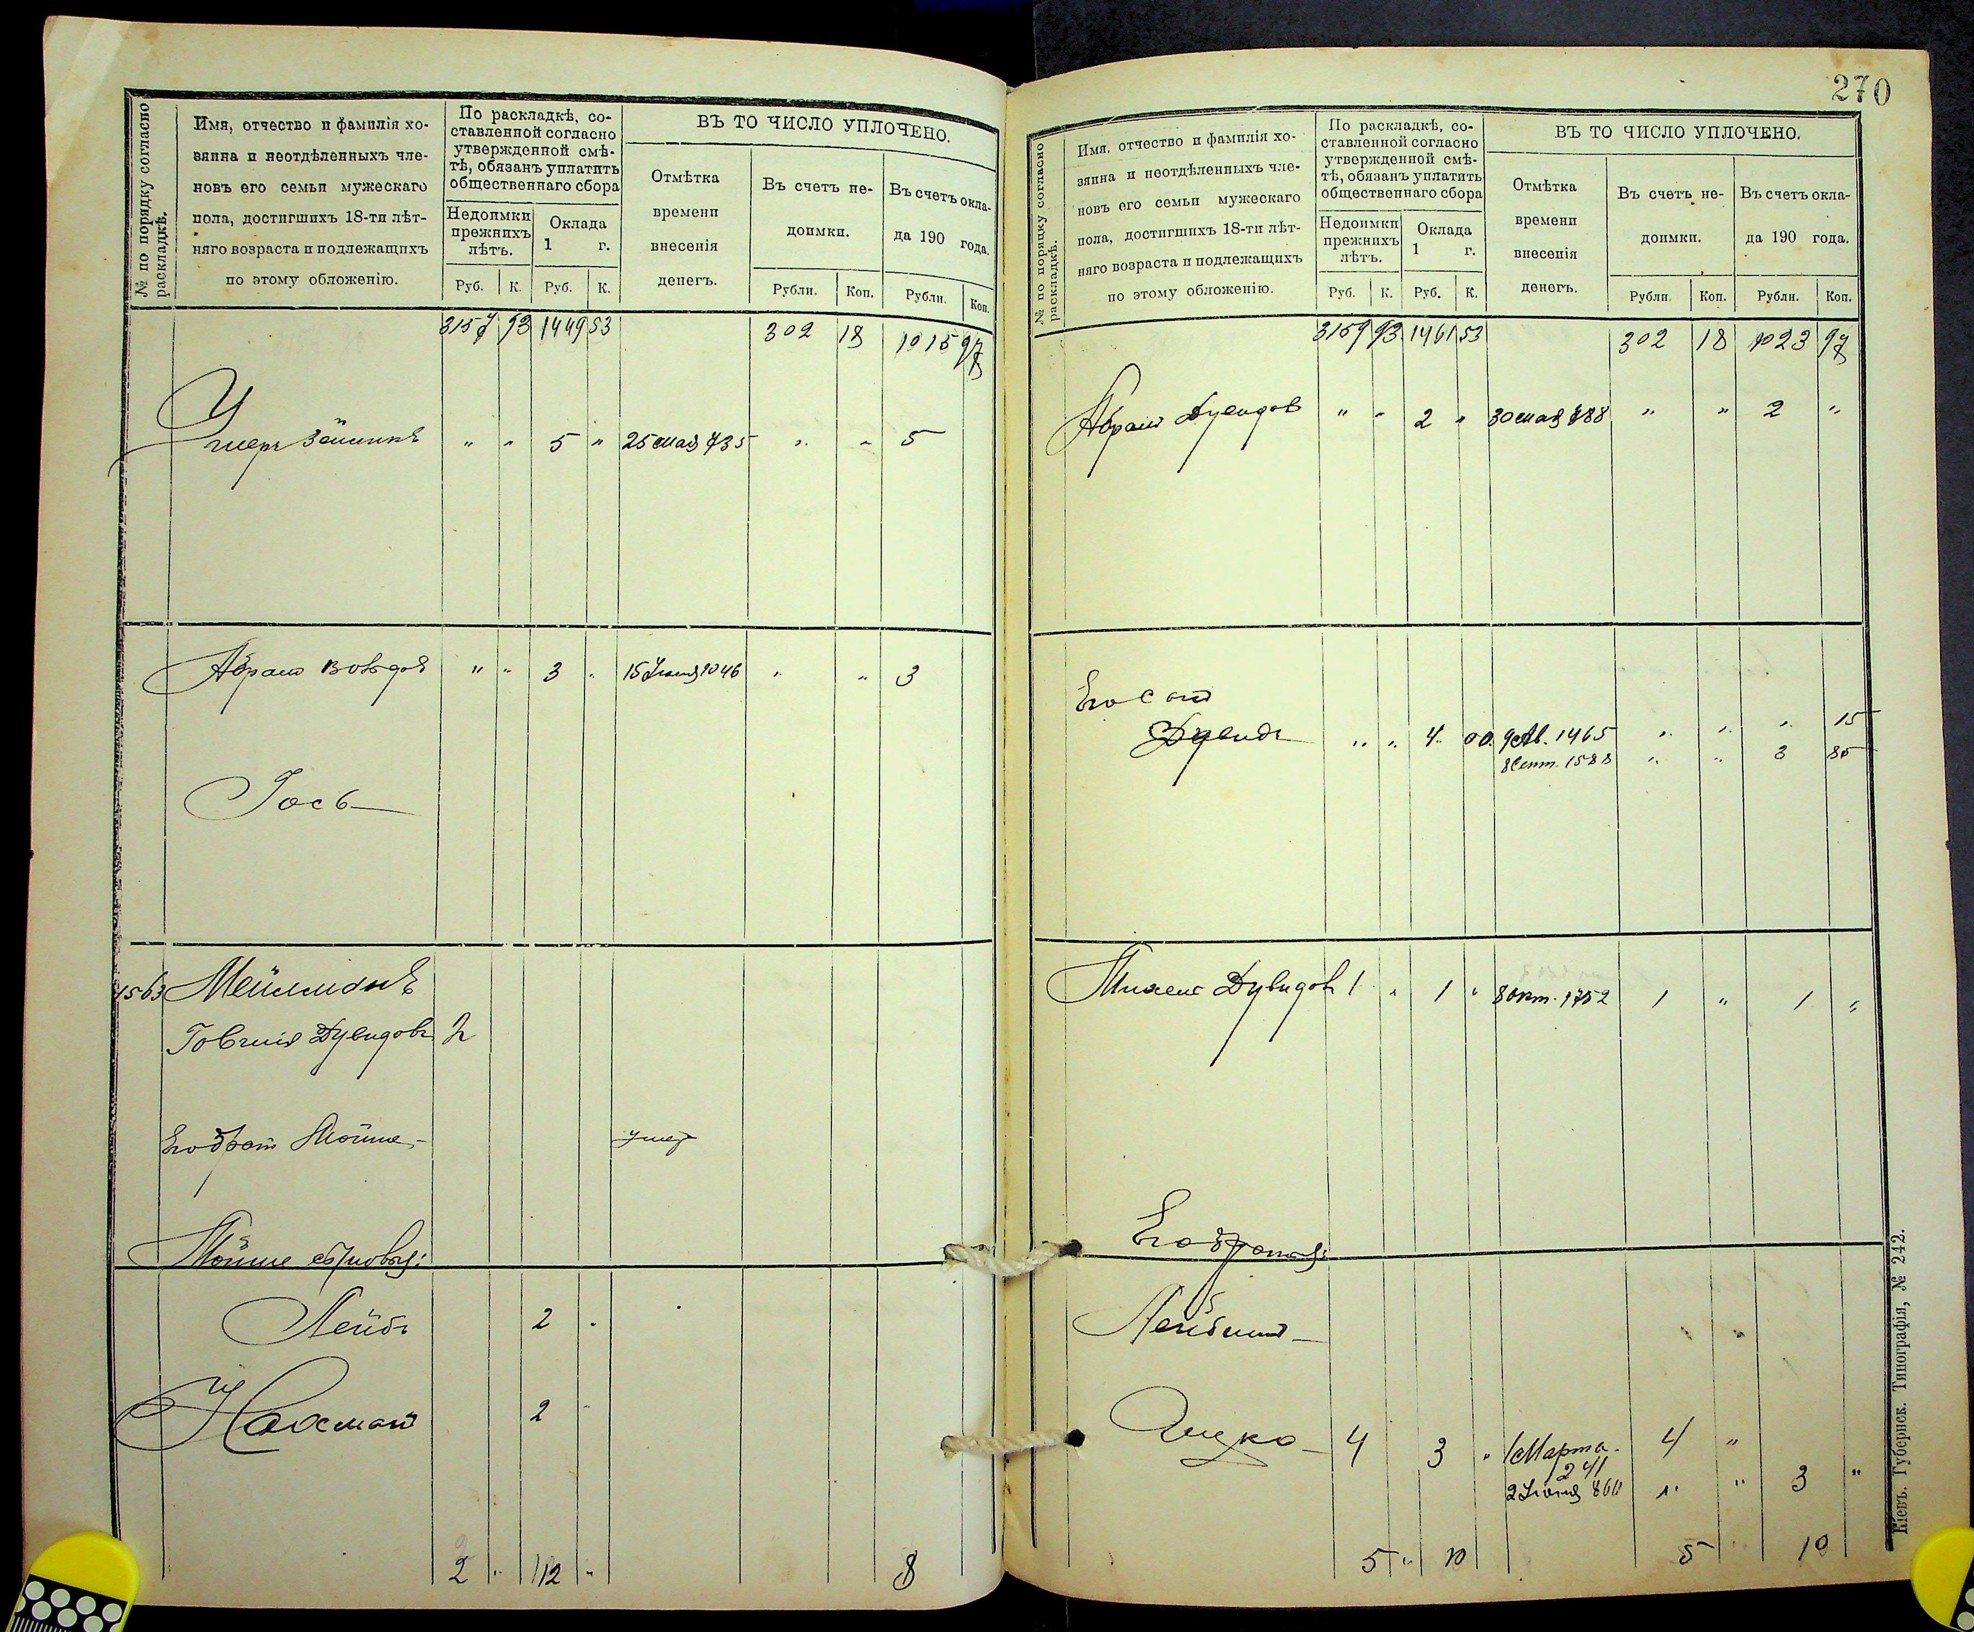 270
№ по порядку согласно раскладкѣ.
Имя, отчество и фамилія хо-
зяина и неотдѣленныхъ чле-
новъ его семьи мужескаго
пола, достигшихъ 18-ти лѣт-
няго возраста и подлежащихъ
по этому обложенію.
По раскладкѣ, со-
ставленной согласно
утвержденной смѣ-
тѣ, обязанъ уплатить
общественнаго сбора
Недоимки прежнихъ лѣтъ.
Оклада 1 г.
Руб. К. Руб. К.
ВЪ ТО ЧИСЛО УПЛОЧЕНО.
Отмѣтка времени внесенія денегъ.
Въ счетъ не-
доимки.
Рубли. Коп.
Въ счетъ окла-
да 190 года.
Рубли. Коп.
3157 93 1449 53 302 18 1015 97
" " 5 " 25 мая 735 " " 5
Абрамъ " " 3 " 15 Іюня 1046 " " 3
Гось
1563
Дувидовъ 2
Его братъ Мойше умер
Мойше сыновья:
Лейбъ 2 "
Нахманъ 2 "
2 " 12 " 8
№ по порядку согласно раскладкѣ.
Имя, отчество и фамилія хо-
зяина и неотдѣленныхъ чле-
новъ его семьи мужескаго
пола, достигшихъ 18-ти лѣт-
няго возраста и подлежащихъ
по этому обложенію.
По раскладкѣ, со-
ставленной согласно
утвержденной смѣ-
тѣ, обязанъ уплатить
общественнаго сбора
Недоимки прежнихъ лѣтъ.
Оклада 1 г.
Руб. К. Руб. К.
ВЪ ТО ЧИСЛО УПЛОЧЕНО.
Отмѣтка времени внесенія денегъ.
Въ счетъ не-
доимки.
Рубли. Коп.
Въ счетъ окла-
да 190 года.
Рубли. Коп.
3159 93 1461 53 302 18 1023 97
Абрамъ Дувидов " " 2 " 30 мая 788 " " 2 "
Его сынъ
Дувидъ " " 4 00 9 Ав. 1465 " " " 15
8 Сент. 1588 " " 3 85
Дувидовъ 1 " 1 " 8 Окт. 1752 1 " 1 "
Его братья:
Ицко 4 3 " 1 Марта 4 "
241
2 Іюня 860 " " 3 "
5 " 10 5 10
Кіевъ. Губернск. Типографія, № 242.